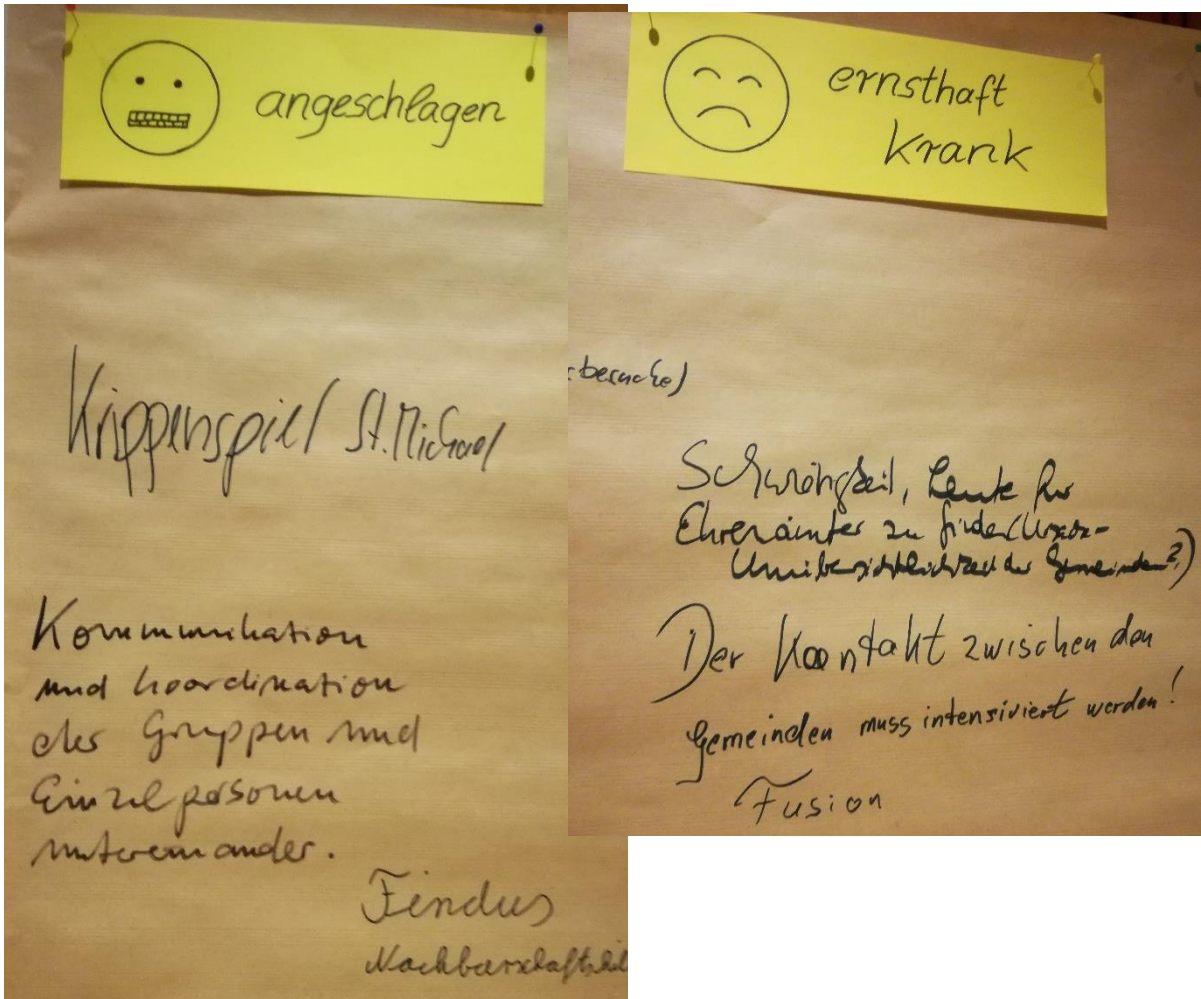 angeschlagen
Krippenspiel St. Michael
Kommunikation
und Koordination
der Gruppen und
Einzelpersonen
untereinander.
Findus
Nachbarschaftshil
ernsthaft
krank
besuche)
Schwierigkeit, Leute für
Ehrenämter zu finden (Ursache
Unübersichtlichkeit der Gemeinden?)
Der Kontakt zwischen den
Gemeinden muss intensiviert werden!
Fusion